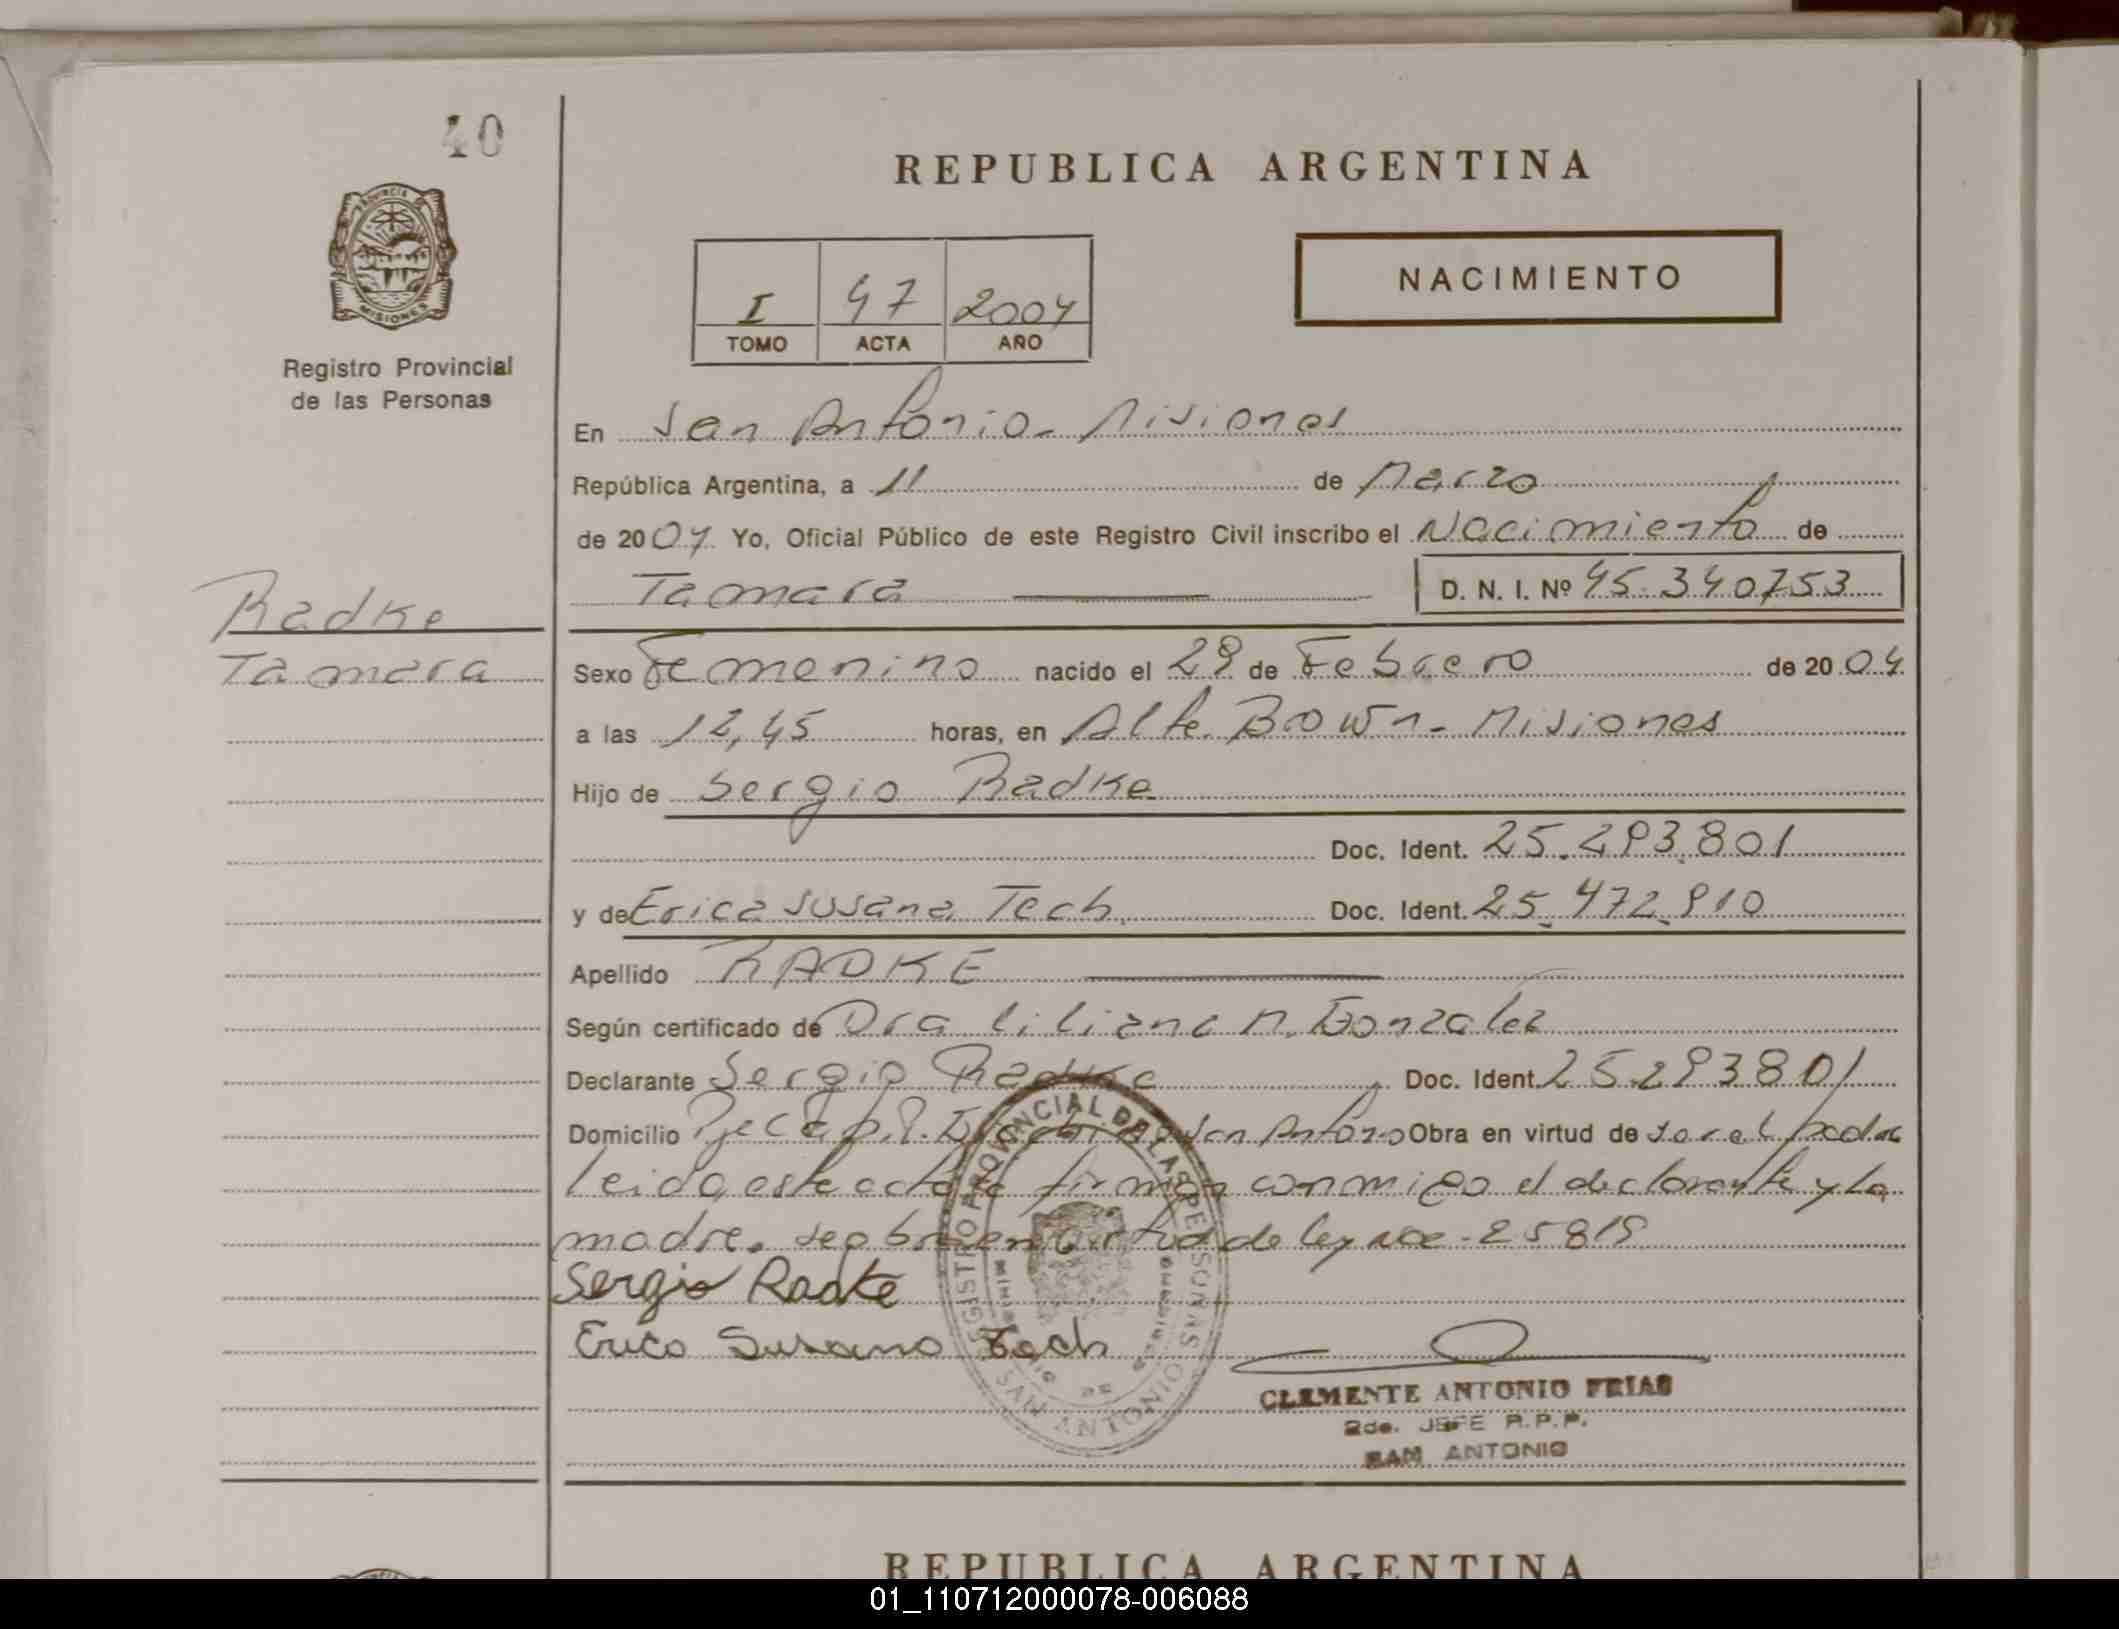 40
REPUBLICA ARGENTINA
PROVINCIA DE MISIONES
Registro Provincial
de las Personas
I 47 2004
TOMO ACTA AÑO
NACIMIENTO
En San Antonio - Misiones
República Argentina, a 11 de Marzo
de 2004 Yo, Oficial Público de este Registro Civil inscribo el Nacimiento de
Tamara D. N. I. Nº 45.340753
Radke
Tamara
Sexo Femenino nacido el 29 de Febrero de 2004
a las 12,45 horas, en Alte. Brown - Misiones
Hijo de Sergio Radke
Doc. Ident. 25.293.801
y de Erica Susana Tech. Doc. Ident. 25.472.910
Apellido RADKE
Según certificado de Dra Liliana M. Gonzalez
Declarante Sergio Radke Doc. Ident. 25.293801
Domicilio San Antonio Obra en virtud de ser el padre
Leida este acta firman conmigo el declarante y la
madre. en virtud de ley nro - 25819
Sergio Radke
Erica Susana Tech
REGISTRO PROVINCIAL DE LAS PERSONAS
SAN ANTONIO
CLEMENTE ANTONIO FRIAS
2do. JEFE R.P.P.
SAN ANTONIO
REPUBLICA ARGENTINA
01_110712000078-006088